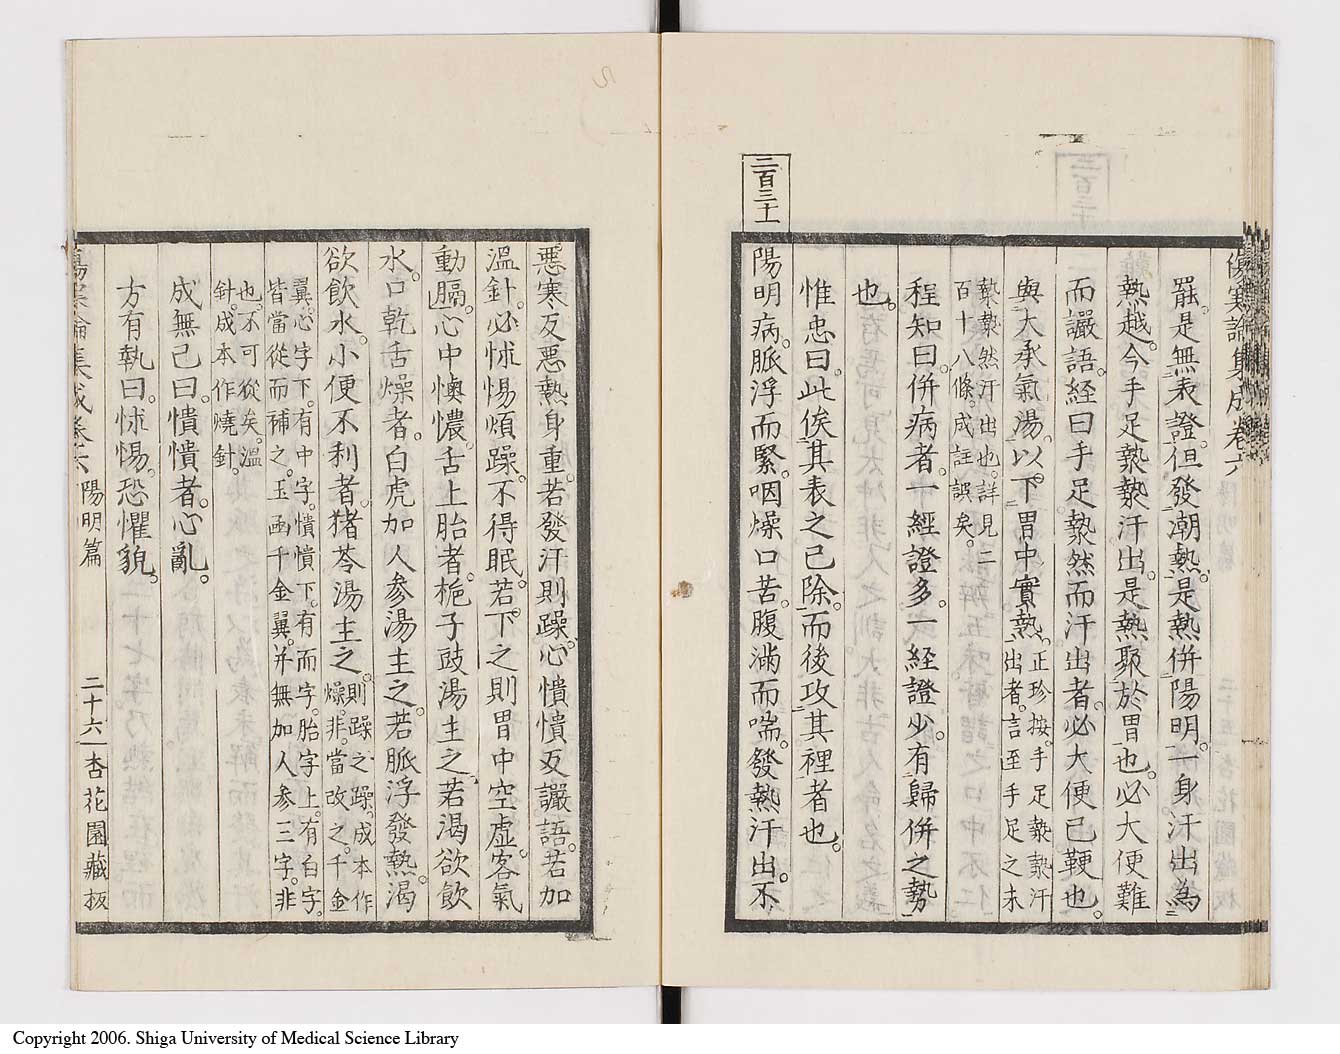 傷寒論集成卷六
罷是無表證但發潮熱是熱併陽明一身汗出為
熱越今手足漐漐汗出是熱聚於胃也必大便難
而讝語經曰手足漐然而汗出者必大便已鞕也
與大承氣湯以下胃中實熱正珍按手足漐漐汗
出者言至手足之末
漐漐然汗出也詳見二
百十八條成註誤矣
程知曰併病者一經證多一經證少有歸併之勢
也
惟忠曰此俟其表之已除而後攻其裡者也
二百三十一
陽明病脈浮而緊咽燥口苦腹滿而喘發熱汗出不
惡寒反惡熱身重若發汗則躁心憒憒反讝語若加
溫針必怵惕煩躁不得眠若下之則胃中空虛客氣
動膈心中懊憹舌上胎者梔子豉湯主之若渴欲飲
水口乾舌燥者白虎加人參湯主之若脈浮發熱渴
欲飲水小便不利者猪苓湯主之則躁之躁成本作
燥非當改之千金
翼心字下有中字憒憒下有而字胎字上有白字
皆當從而補之玉函千金翼并無加人參三字非
也不可從矣溫
針成本作燒針
成無己曰憒憒者心亂
方有執曰怵惕恐懼貌
傷寒論集成卷六 陽明篇 二十六 杏花園藏板
Copyright 2006. Shiga University of Medical Science Library